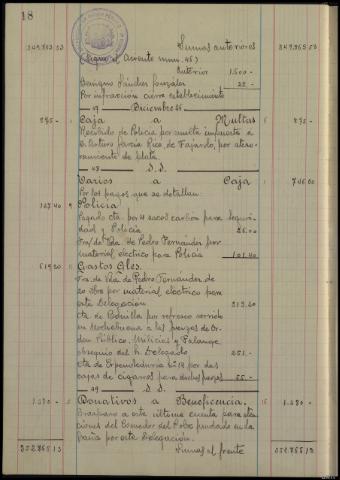 18
Sumas anteriores
(Sigue el Asiento núm. 45)
Anterior 1.500.-
Benigno Sánchez González 25.-
Por infracción cierre establecimiento
47 Diciembre 25
875.- Caja a Multas 875.-
Recibido de Policía por multa impuesta a
D. Arturo García Rico de Fajardo, por
de plata
48 d. d.
Varios a Caja
Por los pagos que se detallan:
Policía
Pagado cta. por 4 sacos carbón para Seguri-
dad y Policía
Fra. de Vda. de Pedro Fernández por
material eléctrico para Policía 101.40
Gastos Gles.
Fra. de Vda. de Pedro Fernández de
por material eléctrico para
esta Delegación 313.20
Cta. de Bonilla por refresco servido
en Nochebuena a las fuerzas de Or-
den Público, Milicias y Falange
obsequio del h. Delegado 251.-
Cta. de Expendeduría nº 18 por dos
cajas de cigarros para dichas fuerzas 55.-
49 d. d.
Donativos a Beneficencia.
Traspaso a esta última cuenta para
del Comedor del Pobre fundado en
por esta Delegación.
Sumas al frente